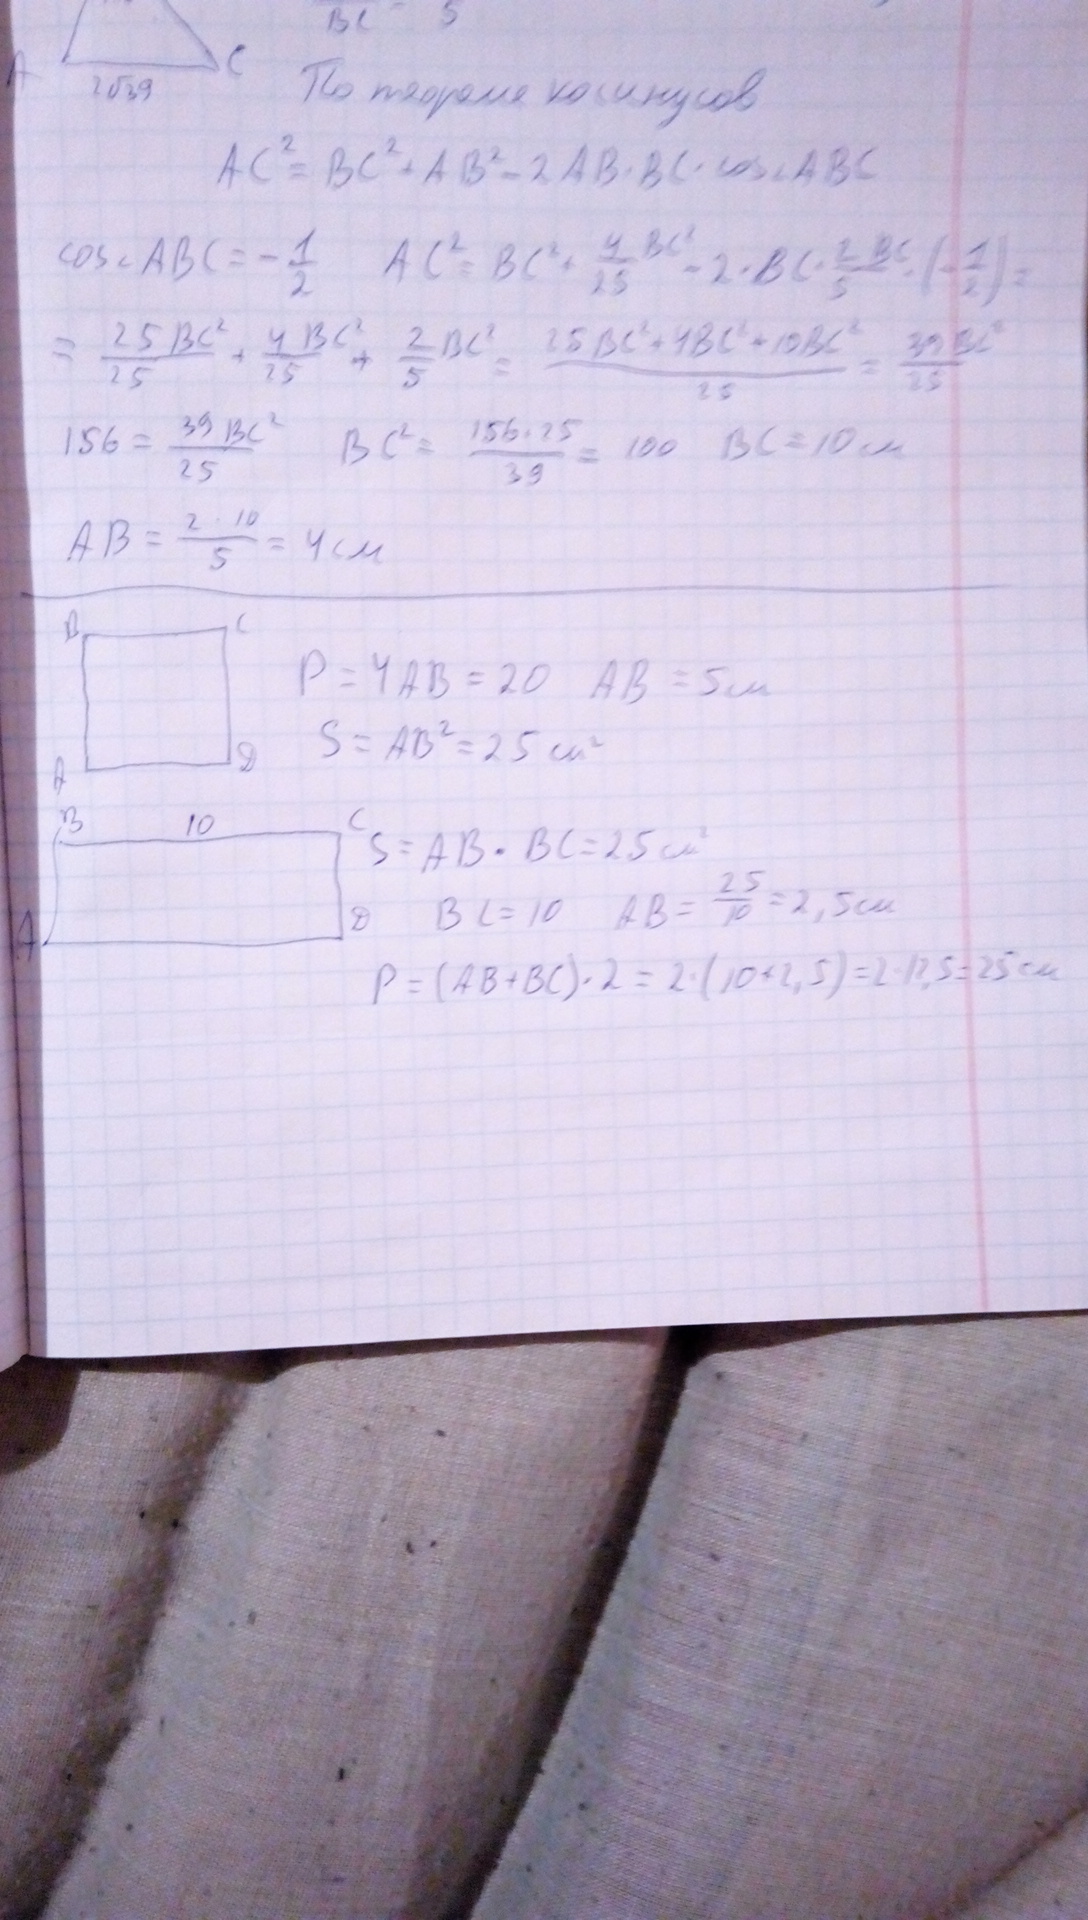 BC 5
A C
2√39
По теореме косинусов
AC² = BC² + AB² - 2AB·BC·cos∠ABC
cos∠ABC = -1/2 AC² = BC² + 4/25 BC² - 2·BC·2/5 BC·(-1/2) =
= 25BC²/25 + 4BC²/25 + 2/5 BC² = (25BC²+4BC²+10BC²)/25 = 39BC²/25
156 = 39BC²/25 BC² = 156·25/39 = 100 BC = 10 см
AB = 2·10/5 = 4 см
B C
P = 4AB = 20 AB = 5 см
S = AB² = 25 см²
A D
B 10 C
S = AB·BC = 25 см²
BC = 10 AB = 25/10 = 2,5 см
A D
P = (AB+BC)·2 = 2·(10+2,5) = 2·12,5 = 25 см